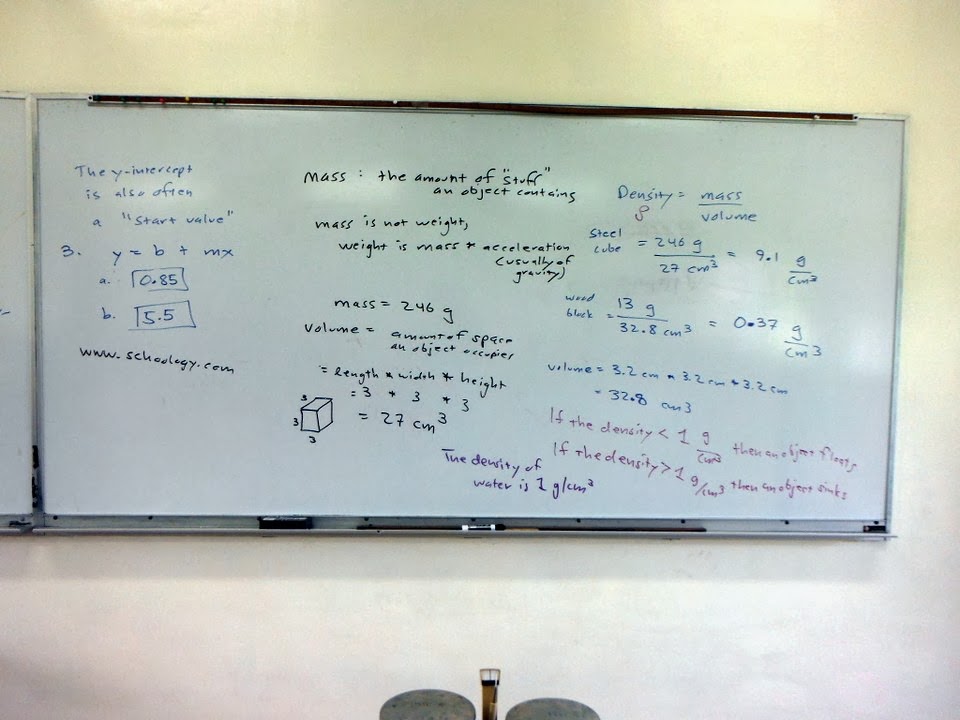 The y-intercept
is also often
a "Start value"
3. y = b + mx
a. 0.85
b. 5.5
www.schoology.com
mass : the amount of "stuff"
an object contains
mass is not weight,
weight is mass * acceleration
(usually of
gravity)
mass = 246 g
volume = amount of space
an object occupies
= length * width * height
= 3 * 3 * 3
= 27 cm³
3
3
3
Density = mass / volume
ρ
Steel cube = 246 g / 27 cm³ = 9.1 g / cm³
wood block = 13 g / 32.8 cm³ = 0.37 g / cm³
volume = 3.2 cm * 3.2 cm * 3.2 cm
= 32.8 cm³
If the density < 1 g / cm³ then an object floats
If the density > 1 g/cm³ then an object sinks
The density of
water is 1 g/cm³